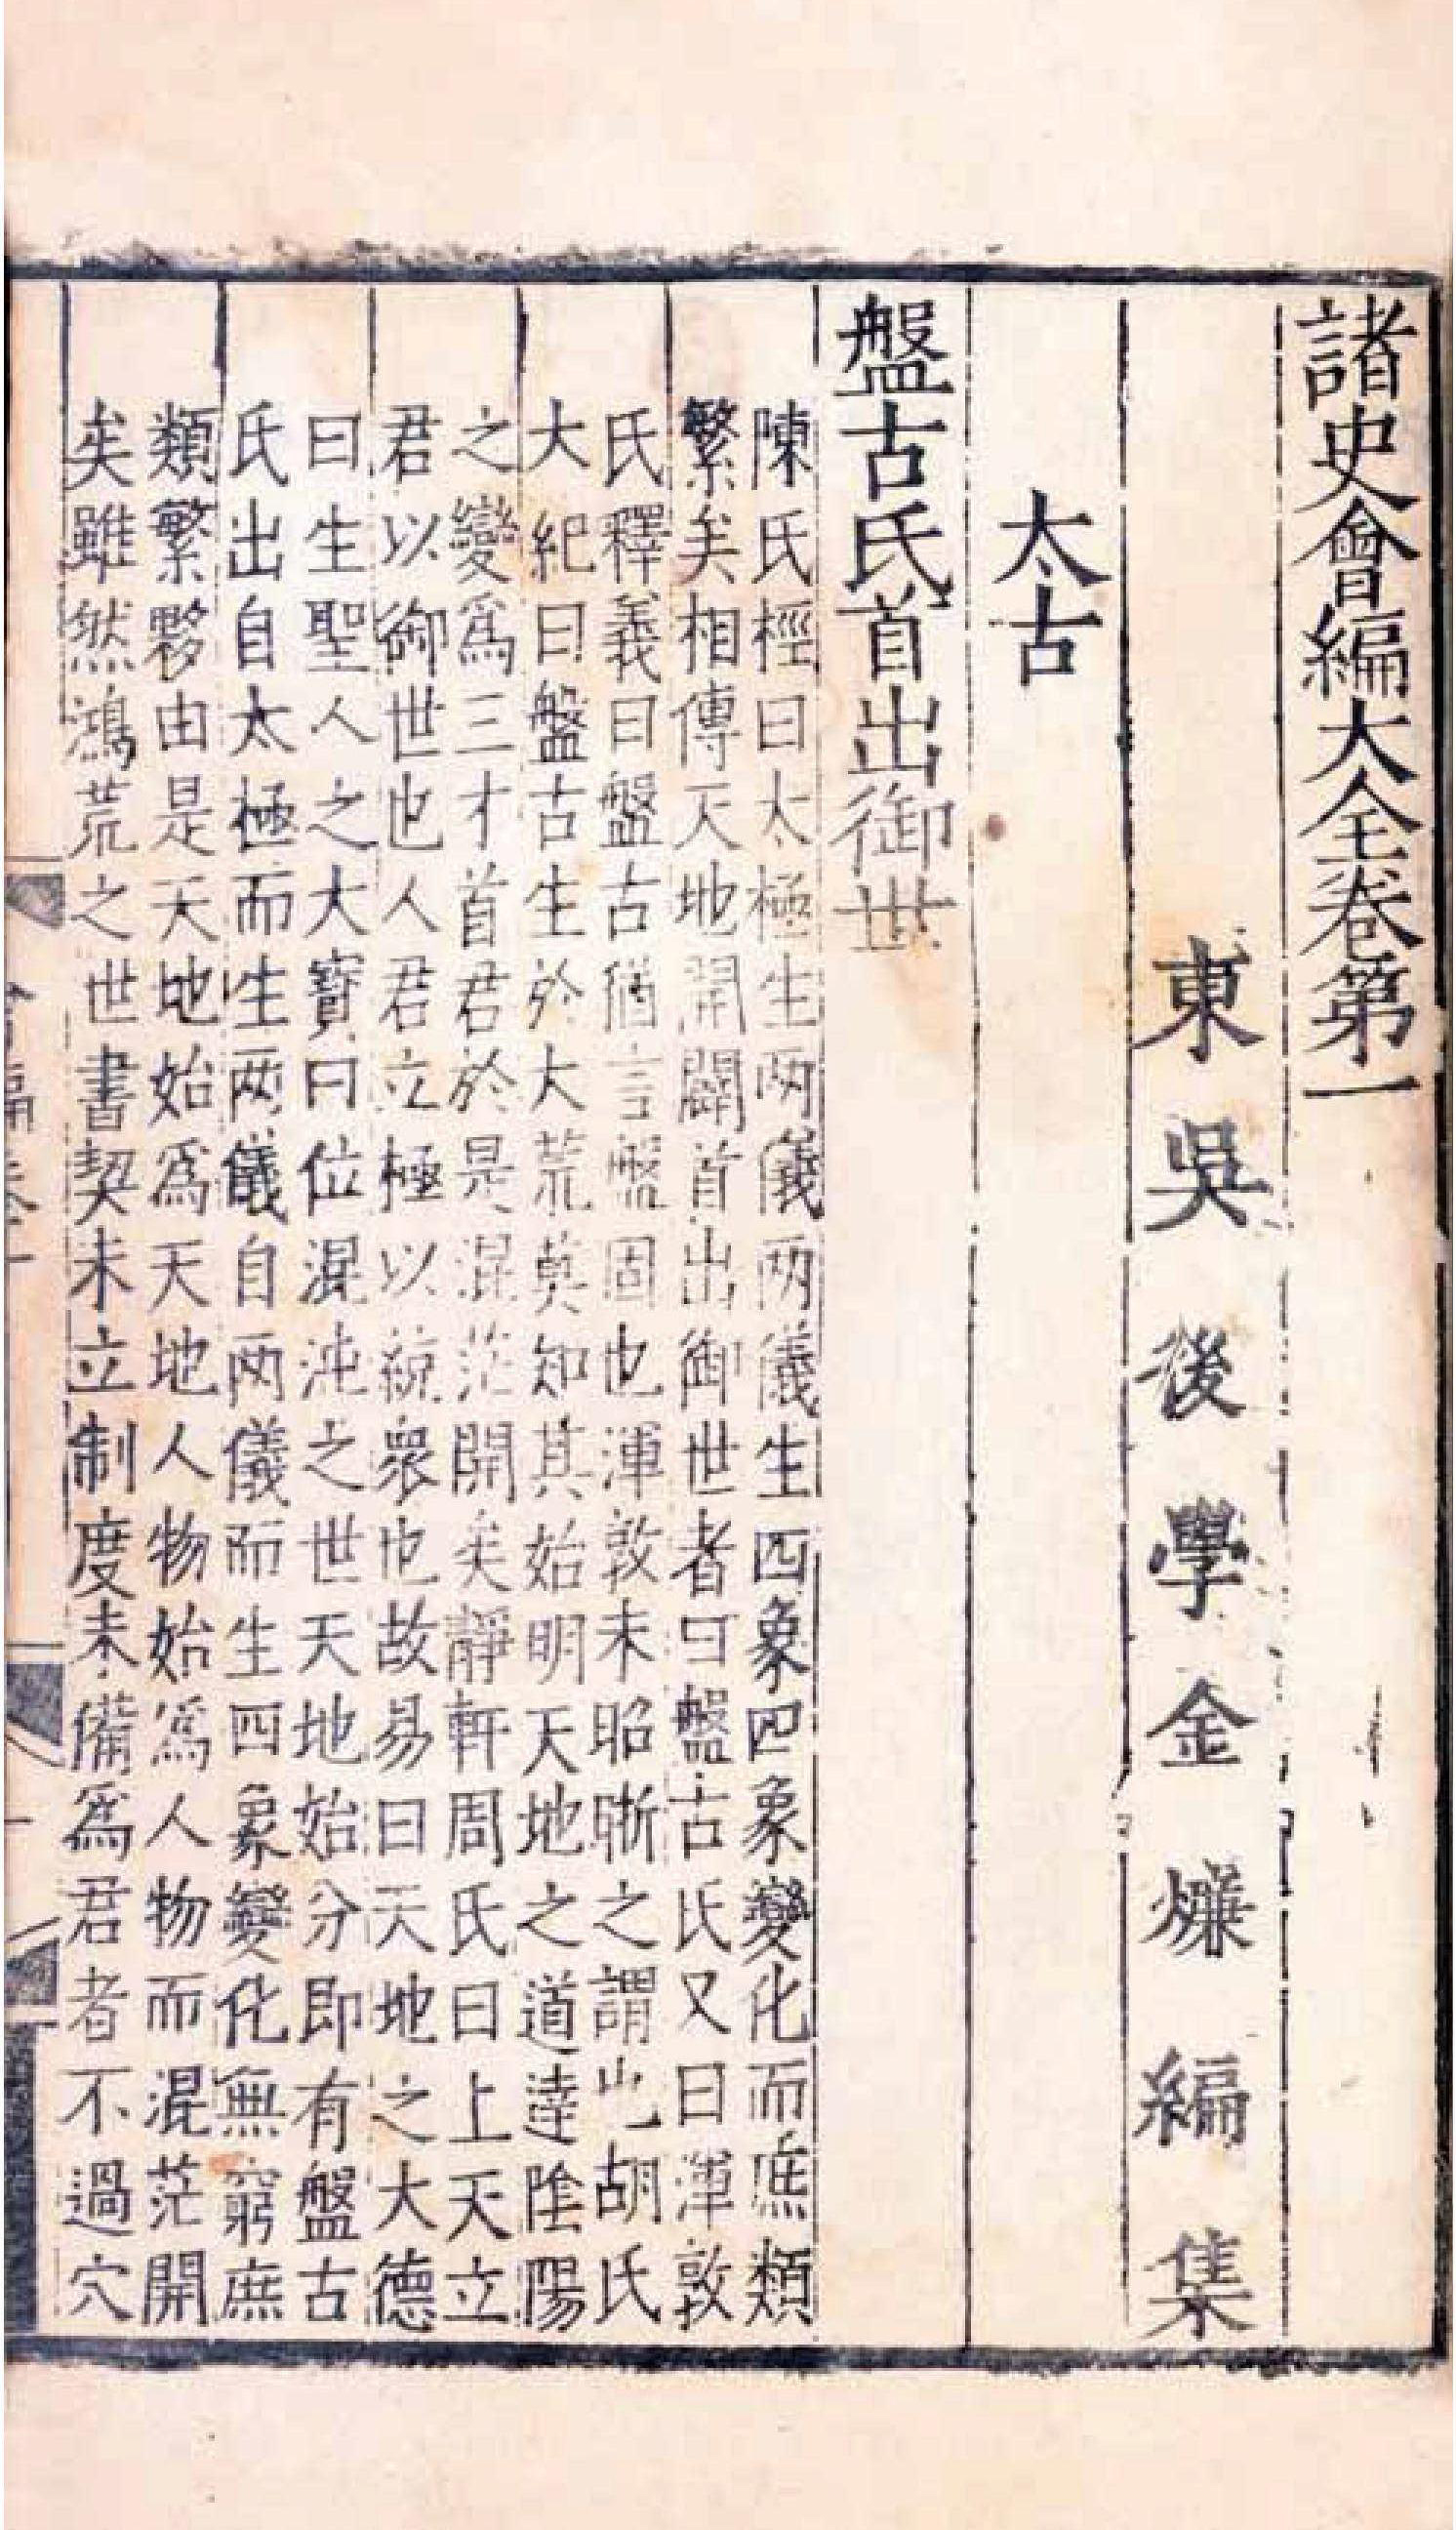 諸史會編大全卷第一
東吳後學金燫編集
太古
盤古氏首出御世
陳氏桱曰太極生两儀两儀生四象四象變化而庶類
繁矣相傳天地開闢首出御世者曰盤古氏又曰渾敦
氏釋義曰盤古猶言盤固也渾敦未昭晰之謂也胡氏
大紀曰盤古生於大荒莫知其始明天地之道逹陰陽
之變爲三才首君於是混茫開矣靜軒周氏曰上天立
君以御世也人君立極以綂衆也故易曰天地之大德
曰生聖人之大寶曰位混沌之世天地始分即有盤古
氏出自太極而生两儀自两儀而生四象變化無窮庶
類繁夥由是天地始爲天地人物始爲人物而混茫開
矣雖然鴻荒之世書契未立制度未備爲君者不過穴